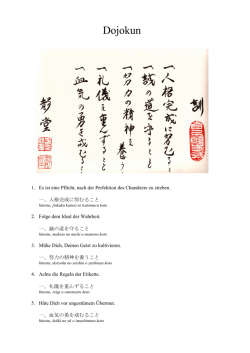 Dojokun
訓
一、人格完成に努むること
一、誠の道を守ること
一、努力の精神を養うこと
一、礼儀を重んずること
一、血気の勇を戒むること
1. Es ist eine Pflicht, nach der Perfektion des Charakters zu streben.
一、人格完成に努むること
hitotsu, jinkaku kansei ni tsutomuru koto
2. Folge dem Ideal der Wahrheit.
一、誠の道を守ること
hitotsu, makoto no michi o mamoru koto
3. Mühe Dich, Deinen Geist zu kultivieren.
一、努力の精神を養うこと
hitotsu, doryoku no seishin o yashinau koto
4. Achte die Regeln der Etikette.
一、礼儀を重んずること
hitotsu, reigi o omonzuru koto
5. Hüte Dich vor ungestümem Übermut.
一、血気の勇を戒むること
hitotsu, kekki no yū o imashimuru koto